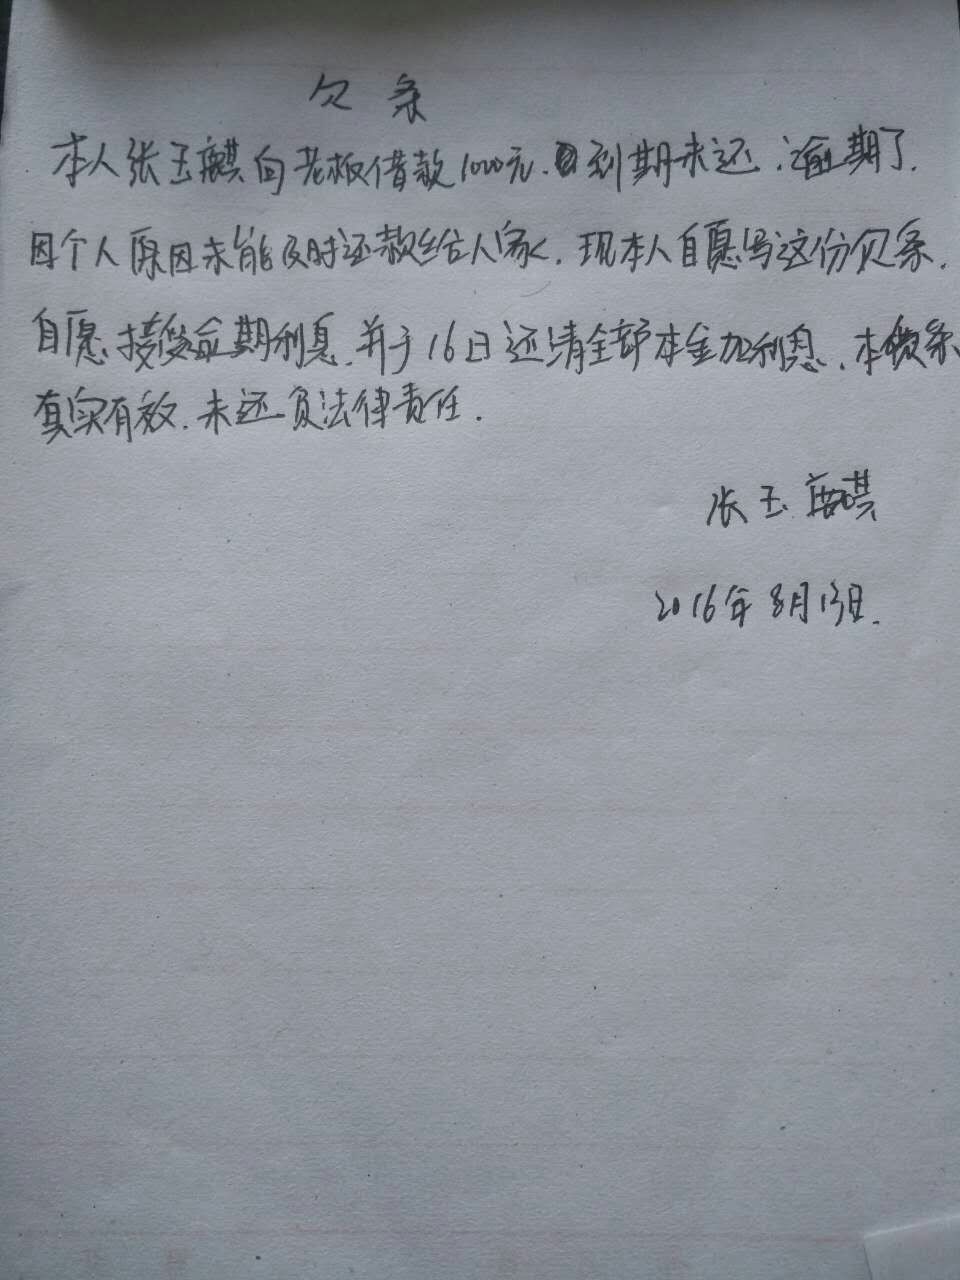 欠条
本人张玉麒向老板借款1000元.到期未还.逾期了.
因个人原因未能及时还款给人家.现本人自愿写这份欠条.
自愿接受逾期利息.并于16日还清全部本金加利息.本条
真实有效.未还负法律责任.
张玉麒
2016年8月13日.